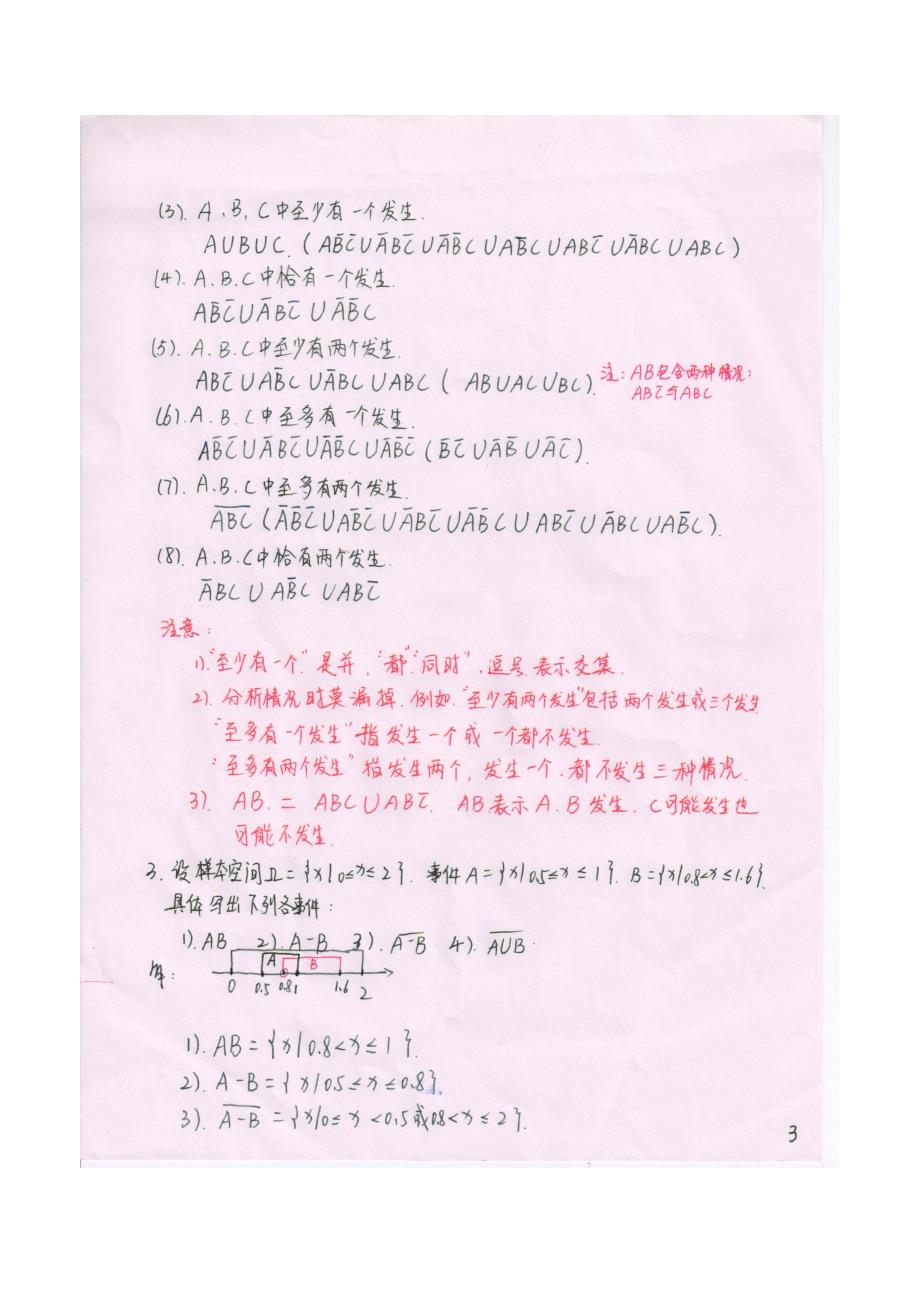 (3). A、B、C中至少有一个发生.
A∪B∪C. (AB̄C̄∪ĀBC̄∪ĀB̄C∪AB̄C∪ABC̄∪ĀBC∪ABC)
(4). A、B、C中恰有一个发生.
AB̄C̄∪ĀBC̄∪ĀB̄C
(5). A、B、C中至少有两个发生.
ABC̄∪AB̄C∪ĀBC∪ABC ( AB∪AC∪BC).
注: AB包含两种情况:
ABC̄与ABC
(6). A、B、C中至多有一个发生.
AB̄C̄∪ĀBC̄∪ĀB̄C∪ĀB̄C̄ (B̄C̄∪ĀB̄∪ĀC̄).
(7). A、B、C中至多有两个发生.
A̅B̅C̅ (ĀB̄C̄∪AB̄C̄∪ĀBC̄∪ĀB̄C∪ABC̄∪ĀBC∪AB̄C).
(8). A、B、C中恰有两个发生.
ĀBC∪AB̄C∪ABC̄
注意:
1). "至少有一个"是并, "都""同时", 逗号表示交集.
2). 分析情况时莫漏掉. 例如. "至少有两个发生"包括两个发生或三个发生
"至多有一个发生"指发生一个或一个都不发生.
"至多有两个发生"指发生两个, 发生一个. 都不发生三种情况.
3). AB. = ABC∪ABC̄. AB表示A、B发生, C可能发生也
可能不发生.
3. 设样本空间Ω={x|0≤x≤2}. 事件A={x|0.5≤x≤1}. B={x|0.8<x≤1.6}.
具体写出下列各事件:
1). AB 2). A-B 3). A̅-̅B̅ 4). A̅∪̅B̅.
解:
A B
0 0.5 0.8 1 1.6 2
1). AB={x|0.8<x≤1}.
2). A-B={x|0.5≤x≤0.8}.
3). A̅-̅B̅={x|0≤x<0.5或0.8<x≤2}.
3